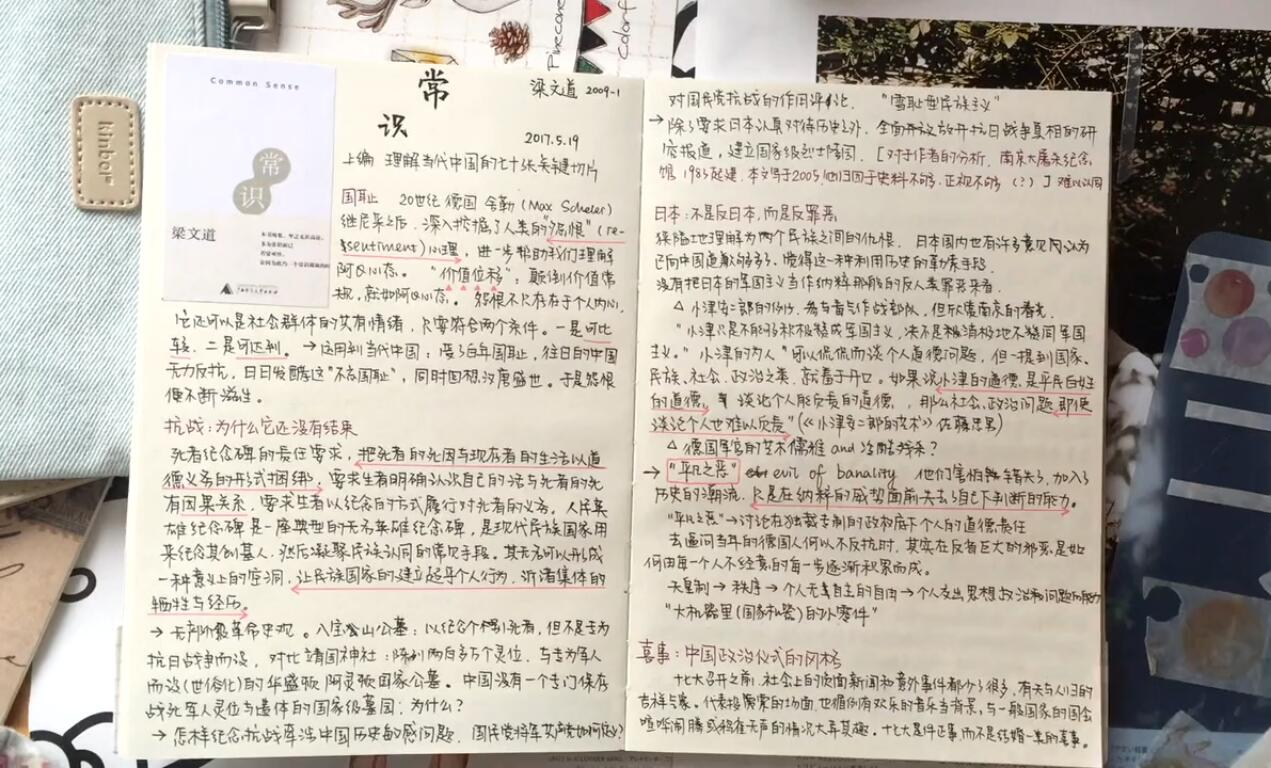 Pinecone
Colorf
kinbor
Common Sense
常识
梁文道
常
识
梁文道 2009-1
2017.5.19
上编 理解当代中国的七十张关键切片
国耻 20世纪德国舍勒(Max Scheler)
继尼采之后,深入挖掘了人类的"怨恨"(re-
ssentment)心理,进一步帮助我们理解
阿Q心态。"价值位移",颠倒价值常
规,就如阿Q心态。怨恨不只存在于个人内心,
它还可以是社会群体的共有情绪,只要符合两个条件。一是可比
较、二是可达到。→运用到当代中国:受了百年国耻,往日的中国
无力反抗,日日发酵这"不忘国耻",同时回想汉唐盛世。于是怨恨
便不断滋生。
抗战:为什么它还没有结果
死者纪念碑的责任要求,把死者的死因与现在者的生活以道
德义务的形式捆绑,要求生者明确认识自己的活与死者的死
有因果关系,要求生者以纪念的方式履行对死者的义务。人民英
雄纪念碑是一座典型的无名英雄纪念碑,是现代民族国家用
来纪念其创基人,然后凝聚民族认同的常见手段。其无名可以形成
一种意义上的空洞,让民族国家的建立起乎个人行为,诉诸集体的
牺牲与经历。
→ 无产阶级革命史观。八宝山公墓:以纪念个程死者,但不专为
抗日战争而设,对比靖国神社:陈列两百多万个灵位,与专为军人
而设(世俗化)的华盛顿阿灵顿国家公墓。中国没有一个专门保存
战死军人灵位与遗体的国家级墓园:为什么?
→ 怎样纪念抗战牵涉中国历史的感问题,国民党将军共产党如何
对国民党抗战的作用评论,"雪耻型民族主义"
→ 除了要求日本认真对待历史之外,全面开放放开抗日战争真相的研
究报道,建立国家级烈士陵园。[对于作者的分析,南京大屠杀纪念
馆1985起建,本文写于2005,归因于史料不够,正视不够(?)]难以认同
日本:不是反日本,而是反罪恶
狭隘地理解为两个民族之间的仇恨。日本国内也有许多意见认为
已向中国道歉够多了,觉得这一种利用历史的勒索手段。
没有把日本的军国主义当作纳粹那般的反人类罪恶来看
△ 小津安二郎的例子,参与毒气作战部队,但欣赏南京的春光
"小津只是不能够积极赞成军国主义,决不是积消极地不赞同军国
主义。"小津的为人"可以侃侃而谈个人道德问题,但一提到国家、
民族、社会、政治之类,就羞于开口。如果说小津的道德是平民百姓
的道德,谈论个人能负责的道德,那么社会、政治问题即使
谈论个人也难以负责"(《小津安二郎的艺术》佐藤忠男)
△ 德国军官的艺术儒雅 and 冷酷残杀?
→ "平凡之恶" evil of banality 他们害怕错失了,加入了
历史的潮流。只是在纳粹的威望面前失去了自己下判断的能力。
"平凡之恶"→讨论在独裁专制的政权底下个人的道德责任
去逼问当年的德国人何以不反抗时,其实在反省巨大的邪恶是如
何由每一个人不经意的每一步逐渐积累而成。
天皇制→秩序→个人无需自主的自由→个人交出思想政治和问题的能力
"大机器里(国家机器)的小零件"
喜事:中国政治仪式的风格
十七大召开之前,社会上的负面新闻和意外事件都少了很多,有天与人归的
吉祥气象。代表投票的场面,也循例有欢乐的音乐当背景,与一般国家的国会
喧哗闹腾或程在无声的情况大异其趣。十七大是件正事而不是结婚一类的喜事。